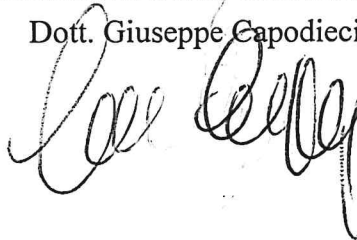 Dott. Giuseppe Capodieci